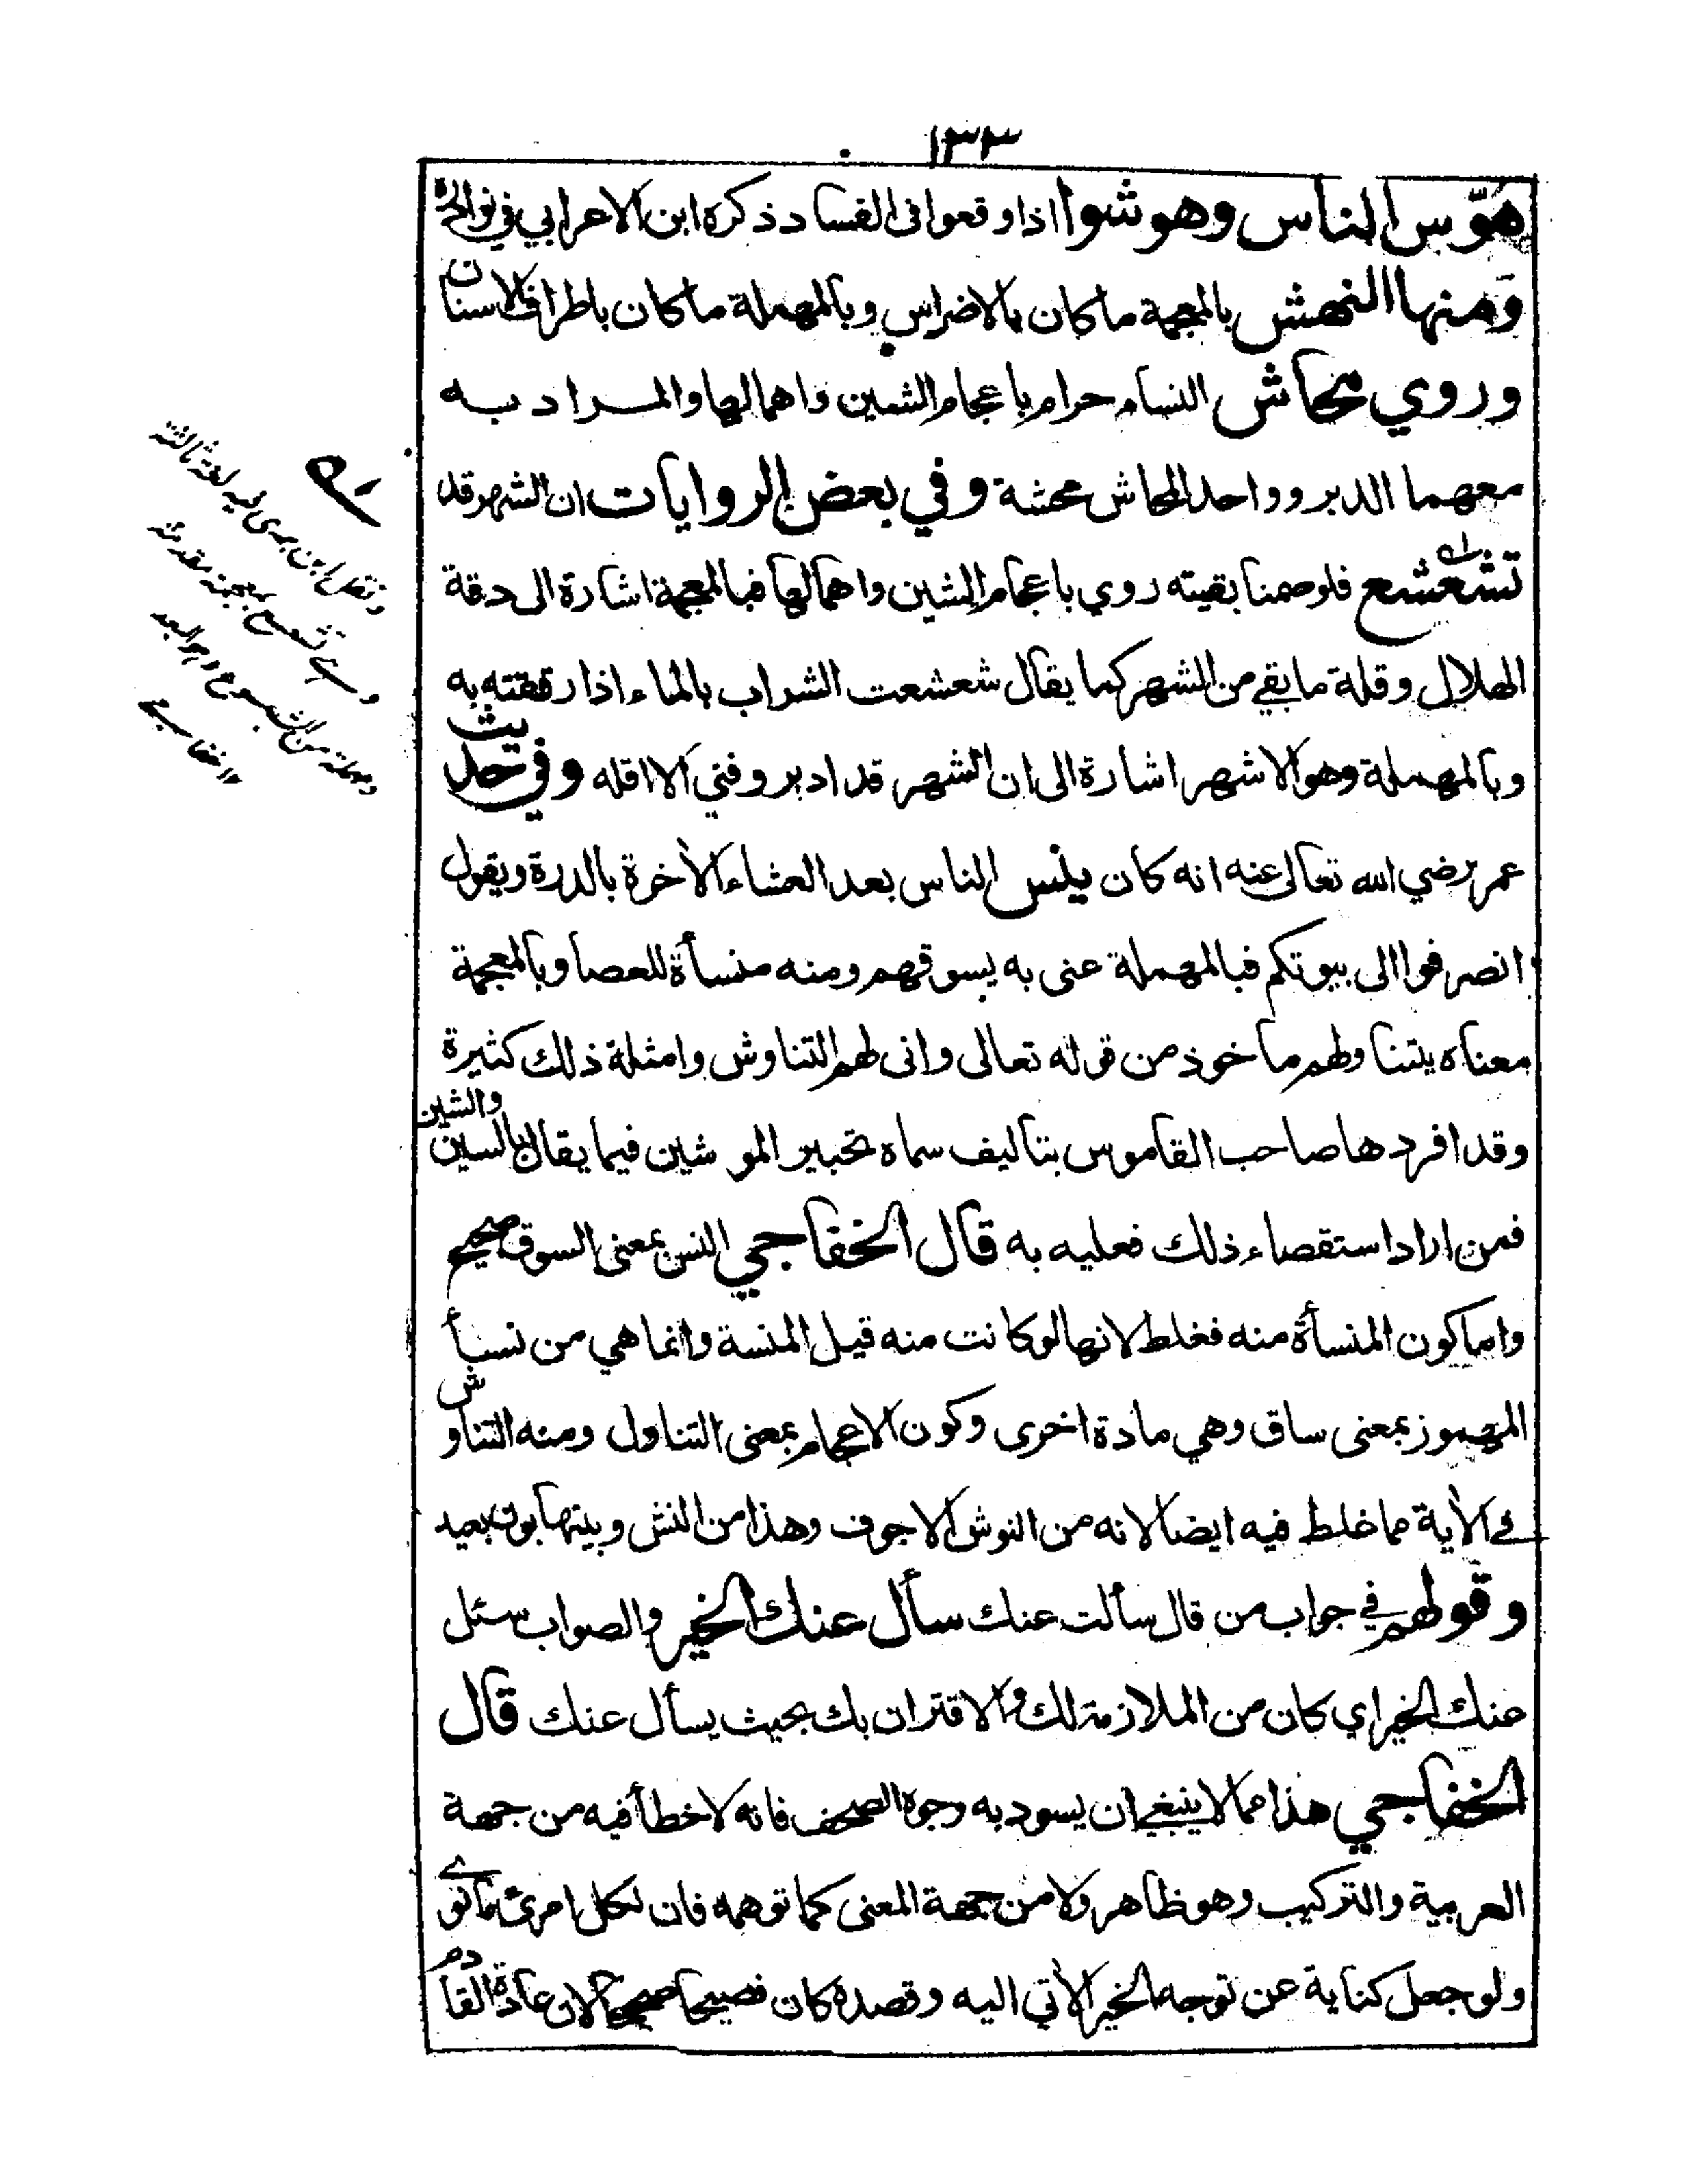 ١٣٣
هوّس الناس وهوشوا اذا وقعوا فى الفساد ذكره ابن الاعرابي في نوادره
ومنها النهش بالمعجمة ما كان بالاضراس وبالمهملة ما كان باطراف الاسنان
وروي محاش النساء حرام باعجام الشين واهمالها والمراد به
معهما الدبر وواحد المحاش محشة وفي بعض الروايات ان الشهر قد
تشعشع فلو صمنا بقيته روي باعجام الشين واهمالها فبالمعجمة اشارة الى دقة
الهلال وقلة ما بقي من الشهر كما يقال شعشعت الشراب بالماء اذا رققته به
وبالمهملة وهو الاشهر اشارة الى ان الشهر قد ادبر وفني الا اقله وفي حديث
عمر رضي الله تعالى عنه انه كان ينس الناس بعد العشاء الأخرة بالدرة ويقول
انصرفوا الى بيوتكم فبالمهملة عنى به يسوقهم ومنه منسأة للعصا وبالمعجمة
معناه يتناولهم ماخوذ من قوله تعالى وانى لهم التناوش وامثلة ذلك كثيرة
وقد افردها صاحب القاموس بتاليف سماه تحبير الموشين فيما يقال بالسين والشين
فمن اراد استقصاء ذلك فعليه به قال الخفاجي النس بمعنى السوق صحيح
واما كون المنسأة منه فغلط لانها لو كانت منه قيل المنسة وانما هي من نسأ
المهموز بمعنى ساق وهي مادة اخرى وكون الاعجام بمعنى التناول ومنه التناوش
في الأية مما خلط فيه ايضا لانه من النوش الاجوف وهذا من النش وبينهما بون بعيد
وقولهم في جواب من قال سألت عنك سأل عنك الخير والصواب سئل
عنك الخير اي كان من الملازمة لك والاقتران بك بحيث يسأل عنك قال
الخفاجي هذا مما لا ينبغي ان يسود به وجوه الصحف فانه لا خطأ فيه من جهة
العربية والتركيب وهو ظاهر ولا من جهة المعنى كما توهمه فان لكل امرئ ما نوى
ولو جعل كناية عن توجه الخير الأتي اليه وقصده كان فصيحا صحيحا لان عادة القادم
ونقل ابن بري فيه لغة ثالثة
وهي تشعسع بمعجمة مقدمة
ومهملة من الشسوع وهو البعد